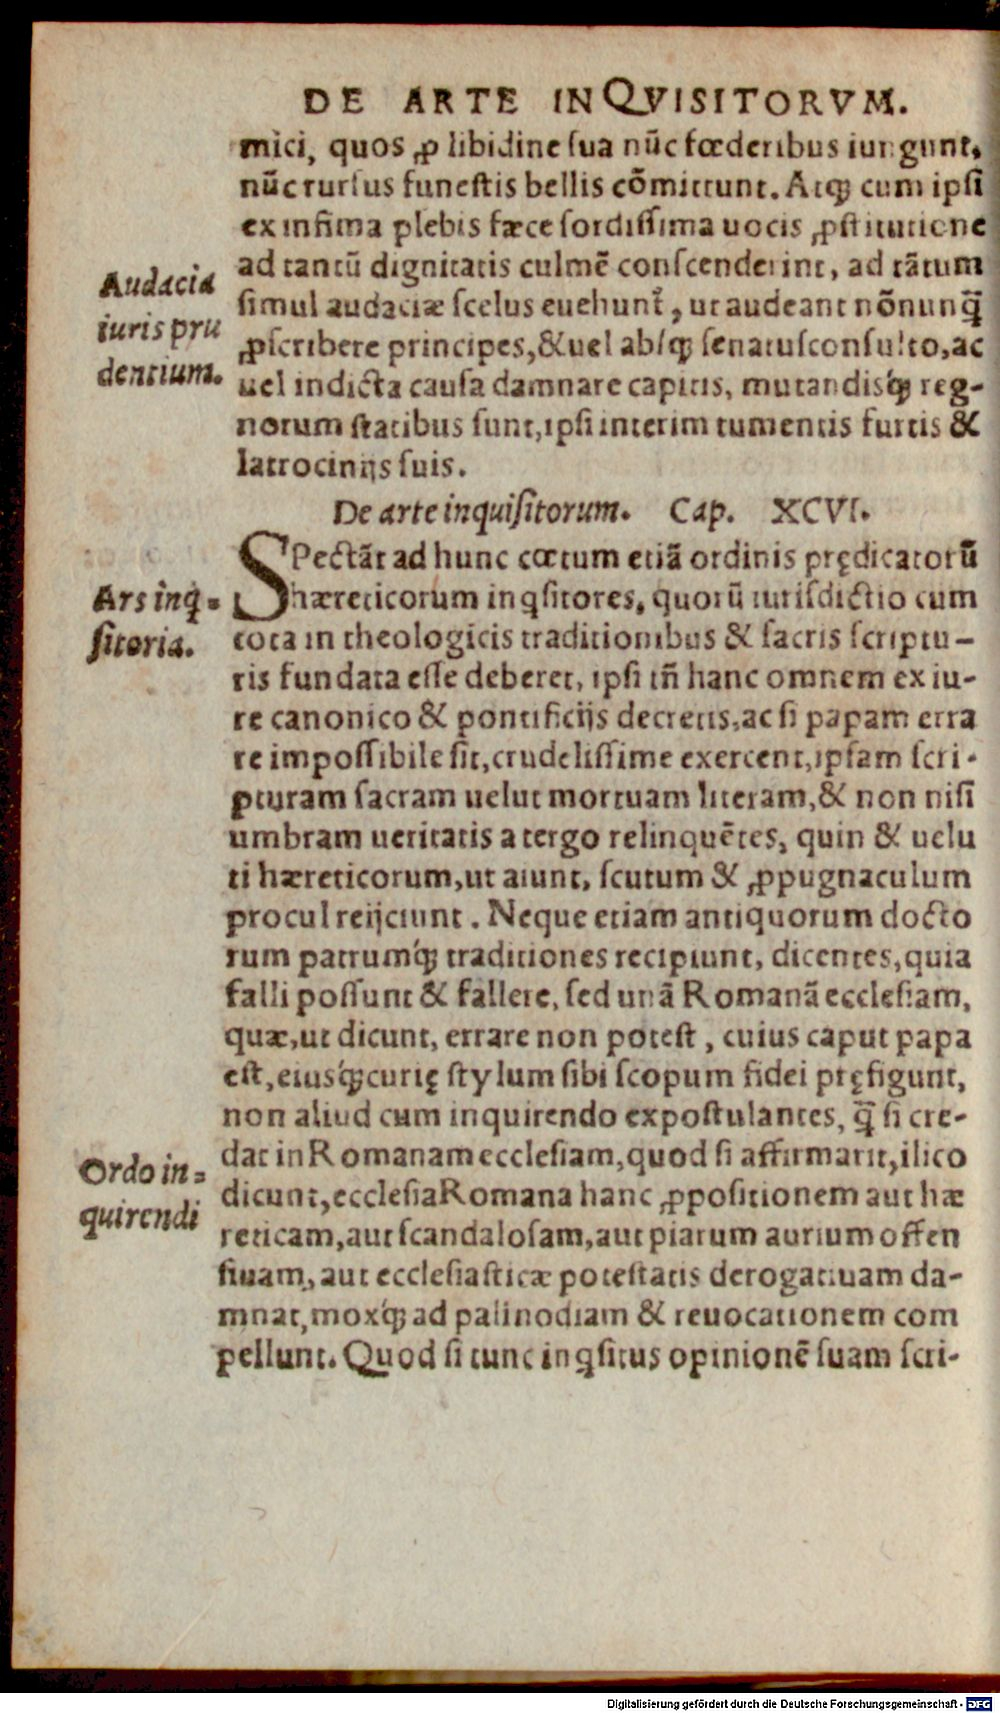 DE ARTE INQVISITORVM.
mici, quos ꝓ libidine sua nūc fœderibus iungunt,
nūc rursus funestis bellis cōmittunt. Atqꝫ cum ipsi
ex infima plebis fæce sordissima uocis ꝓstitutione
ad tantū dignitatis culmē conscenderint, ad tātum
simul audaciæ scelus euehunt᷑, ut audeant nōnunq̄
ꝓscribere principes, & uel absqꝫ senatusconsulto, ac
uel indicta causa damnare capitis, mutandisq́ꝫ reg-
norum statibus sunt, ipsi interim tumentis furtis &
latrocinijs suis.
Audacia
iuris pru
dentium.
De arte inquisitorum. Cap. XCVI.
SPectāt ad hunc cœtum etiā ordinis prędicatorū
hæreticorum inꝗsitores, quorū iurisdictio cum
tota in theologicis traditionibus & sacris scriptu-
ris fundata esse deberet, ipsi tn̄ hanc omnem ex iu-
re canonico & pontificijs decretis, ac si papam erra
re impossibile sit, crudelissime exercent, ipsam scri-
pturam sacram uelut mortuam literam, & non nisi
umbram ueritatis a tergo relinquētes, quin & uelu
ti hæreticorum, ut aiunt, scutum & ꝓpugnaculum
procul reijciunt. Neque etiam antiquorum docto
rum patrumq́ꝫ traditiones recipiunt, dicentes, quia
falli possunt & fallere, sed unā Romanā ecclesiam,
quæ, ut dicunt, errare non potest, cuius caput papa
est, eiusq́ꝫ curię stylum sibi scopum fidei pręfigunt,
non aliud cum inquirendo expostulantes, q̄ si cre-
dat in Romanam ecclesiam, quod si affirmarit, ilico
dicunt, ecclesia Romana hanc ꝓpositionem aut hæ
reticam, aut scandalosam, aut piarum aurium offen
siuam, aut ecclesiasticæ potestatis derogatiuam da-
mnat, moxq́ꝫ ad palinodiam & reuocationem com
pellunt. Quod si tunc inꝗsitus opinionē suam scri-
Ars inꝗ-
sitoria.
Ordo in-
quirendi
Digitalisierung gefördert durch die Deutsche Forschungsgemeinschaft - DFG